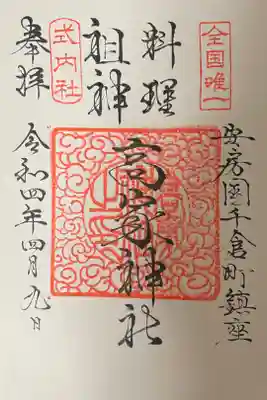 全国唯一
安房國千倉町鎮座
料理
祖神
高家神社
式内社
奉拝
令和四年四月九日